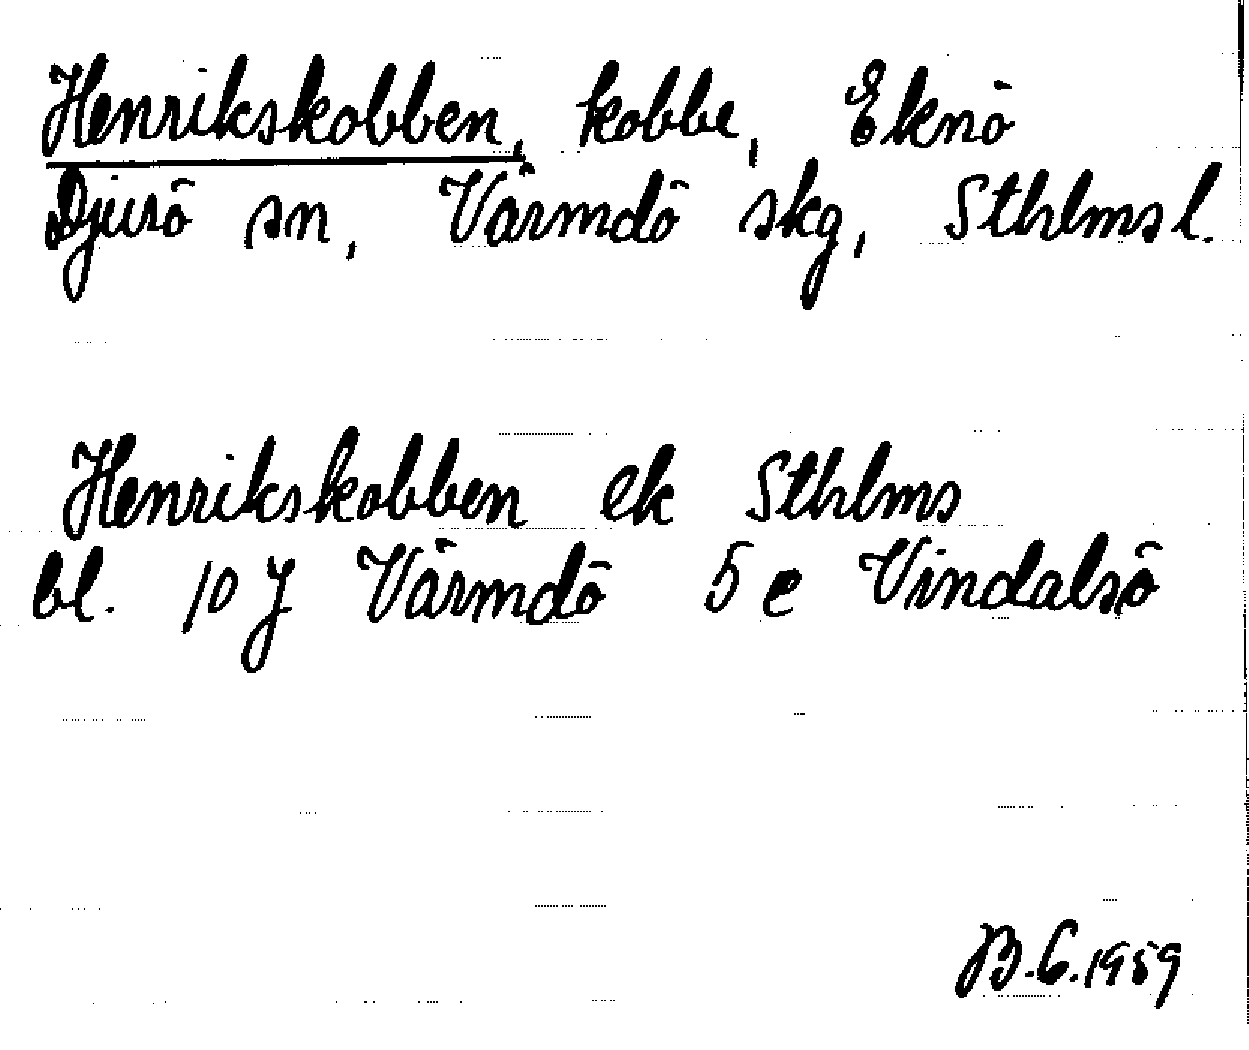 Henrikskobben, kobbe, Eknö
Djurö sn, Värmdö skg, Sthlms l.
Henrikskobben ek Sthlms
bl. 10 J Värmdö 5 e Vindalsö
B.G. 1959